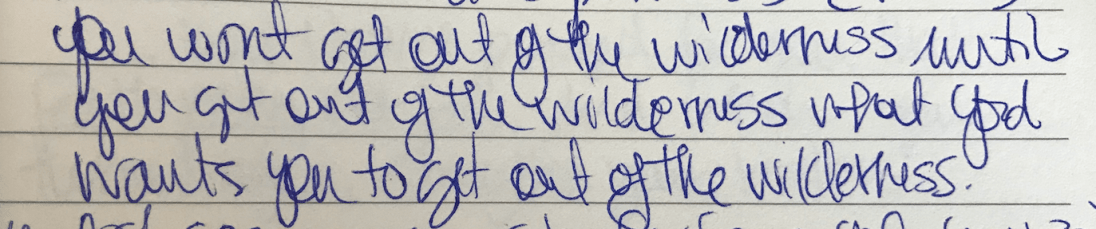 you wont get out of the wilderness until
you get out of the wilderness what God
wants you to get out of the wilderness.